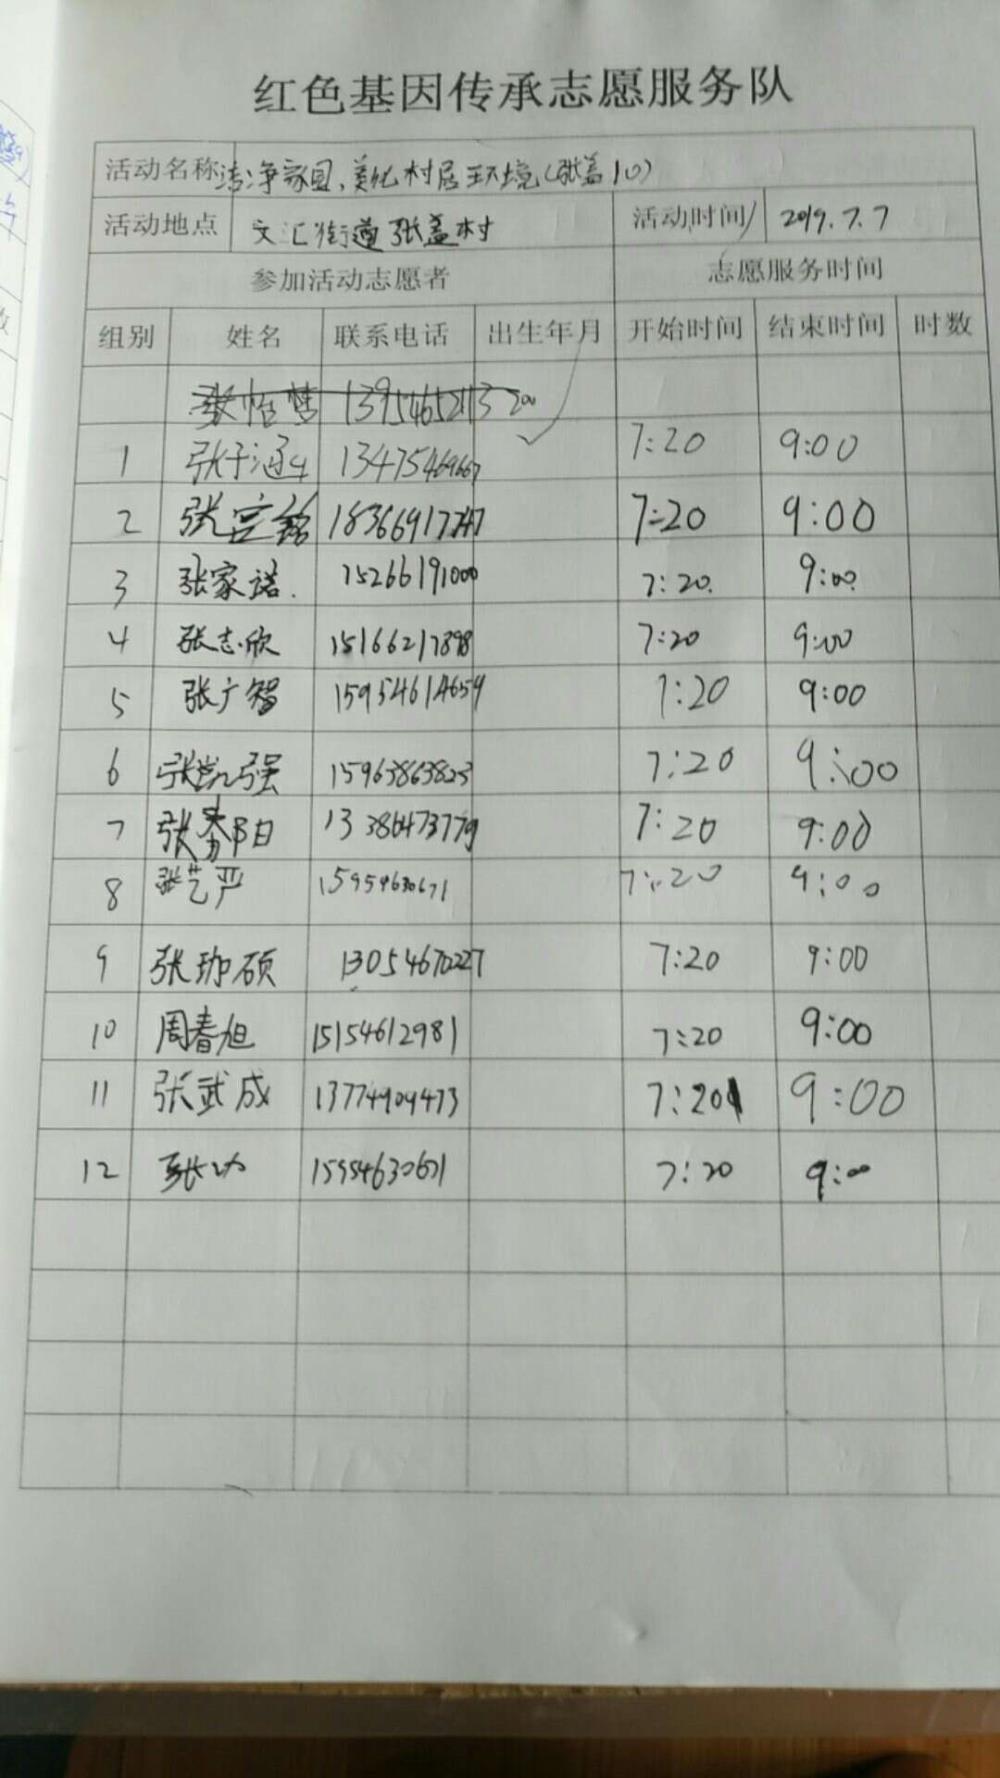 红色基因传承志愿服务队
活动名称 洁净家园、美化村居环境(张盖10)
活动地点 文汇街道张盖村 活动时间 2019.7.7
参加活动志愿者 志愿服务时间
组别 姓名 联系电话 出生年月 开始时间 结束时间 时数
张怡梦
1 张于涵 13475469667 7:20 9:00
2 张宫铭 18366917747 7:20 9:00
3 张家诺. 15266191000 7:20. 9:00
4 张志欣 15166217898 7:20 9:00
5 张广智 15954614659 7:20 9:00
6 张凯强 15963863823 7:20 9:00
7 张 日 13386473779 7:20 9:00
8 张艺严 15954630671 7:20 9:00
9 张珈硕 13054670227 7:20 9:00
10 周春旭 15154612981 7:20 9:00
11 张武成 13774909473 7:20 9:00
12 张 15954630671 7:20 9:00